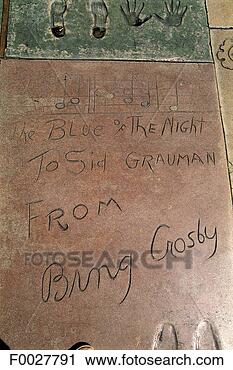 The BLUE of The NIGHT
To Sid GRAUMAN
FROM
Bing Crosby
Fotosearch
F0027791 www.fotosearch.com